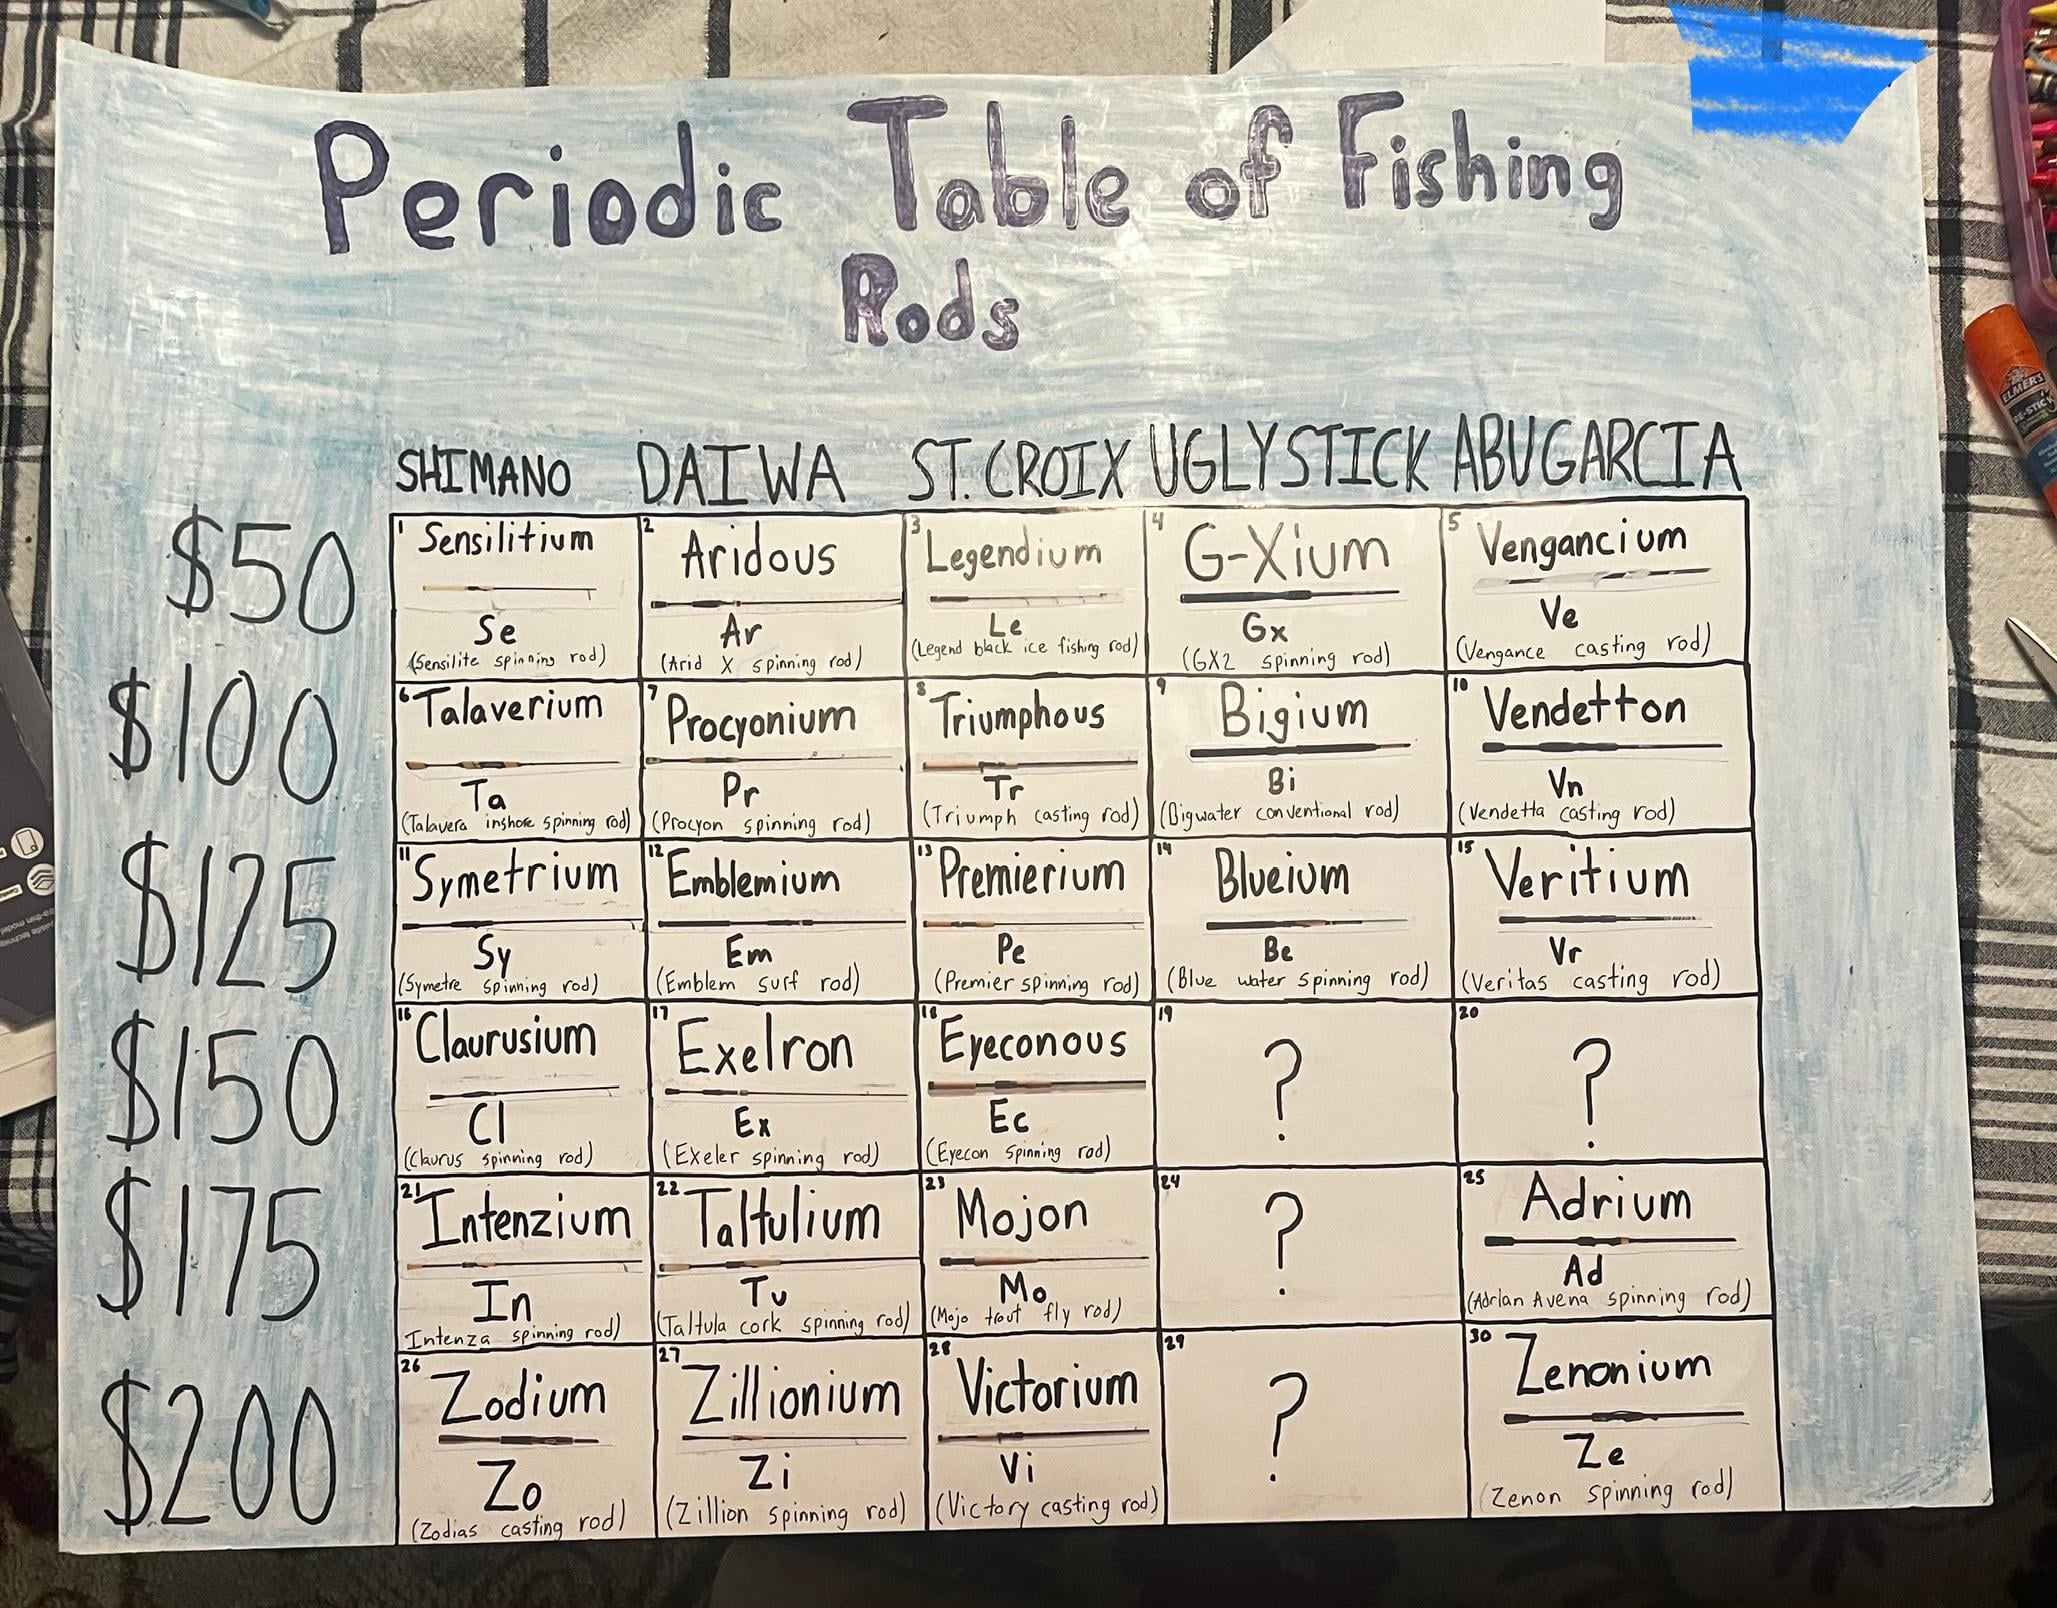 Periodic Table of Fishing
Rods
SHIMANO DAIWA ST. CROIX UGLYSTICK ABUGARCIA
$50
1 Sensilitium
Se
(Sensilite spinning rod)
2 Aridous
Ar
(Arid X spinning rod)
3 Legendium
Le
(Legend black ice fishing rod)
4 G-Xium
Gx
(GX2 spinning rod)
5 Vengancium
Ve
(Vengance casting rod)
$100
6 Talaverium
Ta
(Talavera inshore spinning rod)
7 Procyonium
Pr
(Procyon spinning rod)
8 Triumphous
Tr
(Triumph casting rod)
9 Bigium
Bi
(Bigwater conventional rod)
10 Vendetton
Vn
(Vendetta casting rod)
$125
11 Symetrium
Sy
(Symetre spinning rod)
12 Emblemium
Em
(Emblem surf rod)
13 Premierium
Pe
(Premier spinning rod)
14 Blueium
Be
(Blue water spinning rod)
15 Veritium
Vr
(Veritas casting rod)
$150
16 Claurusium
Cl
(Claurus spinning rod)
17 Exelron
Ex
(Exeler spinning rod)
18 Eyeconous
Ec
(Eyecon spinning rod)
19
?
20
?
$175
21 Intenzium
In
Intenza spinning rod)
22 Taltulium
Tu
(Taltula cork spinning rod)
23 Mojon
Mo
(Mojo trout fly rod)
24
?
25 Adrium
Ad
(Adrian Avena spinning rod)
$200
26 Zodium
Zo
(Zodias casting rod)
27 Zillionium
Zi
(Zillion spinning rod)
28 Victorium
Vi
(Victory casting rod)
29
?
30 Zenonium
Ze
(Zenon spinning rod)
ELMER'S